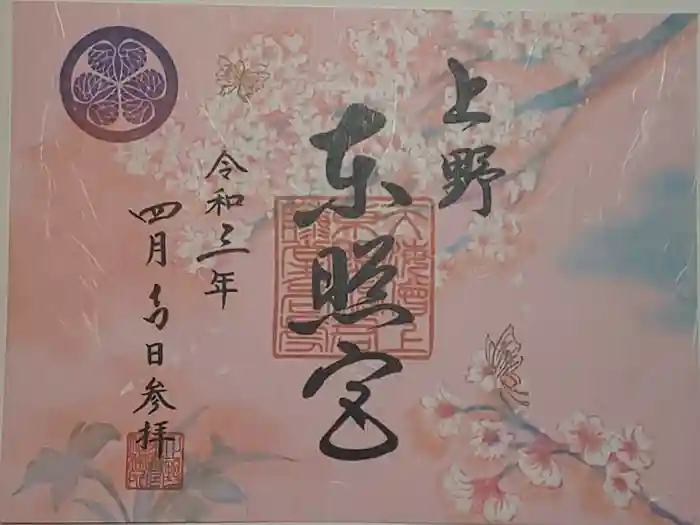 上野
東照宮
令和三年
四月 日参拝